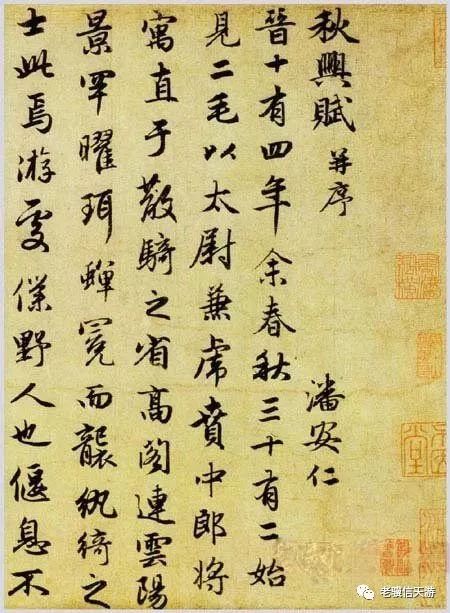 秋興賦 并序 潘安仁
晉十有四年余春秋三十有二始
見二毛以太尉兼虎賁中郎將
寓直于散騎之省高閣連雲陽
景罕曜珥蟬冕而襲紈綺之
士此焉游處僕野人也偃息不
老骥信天游